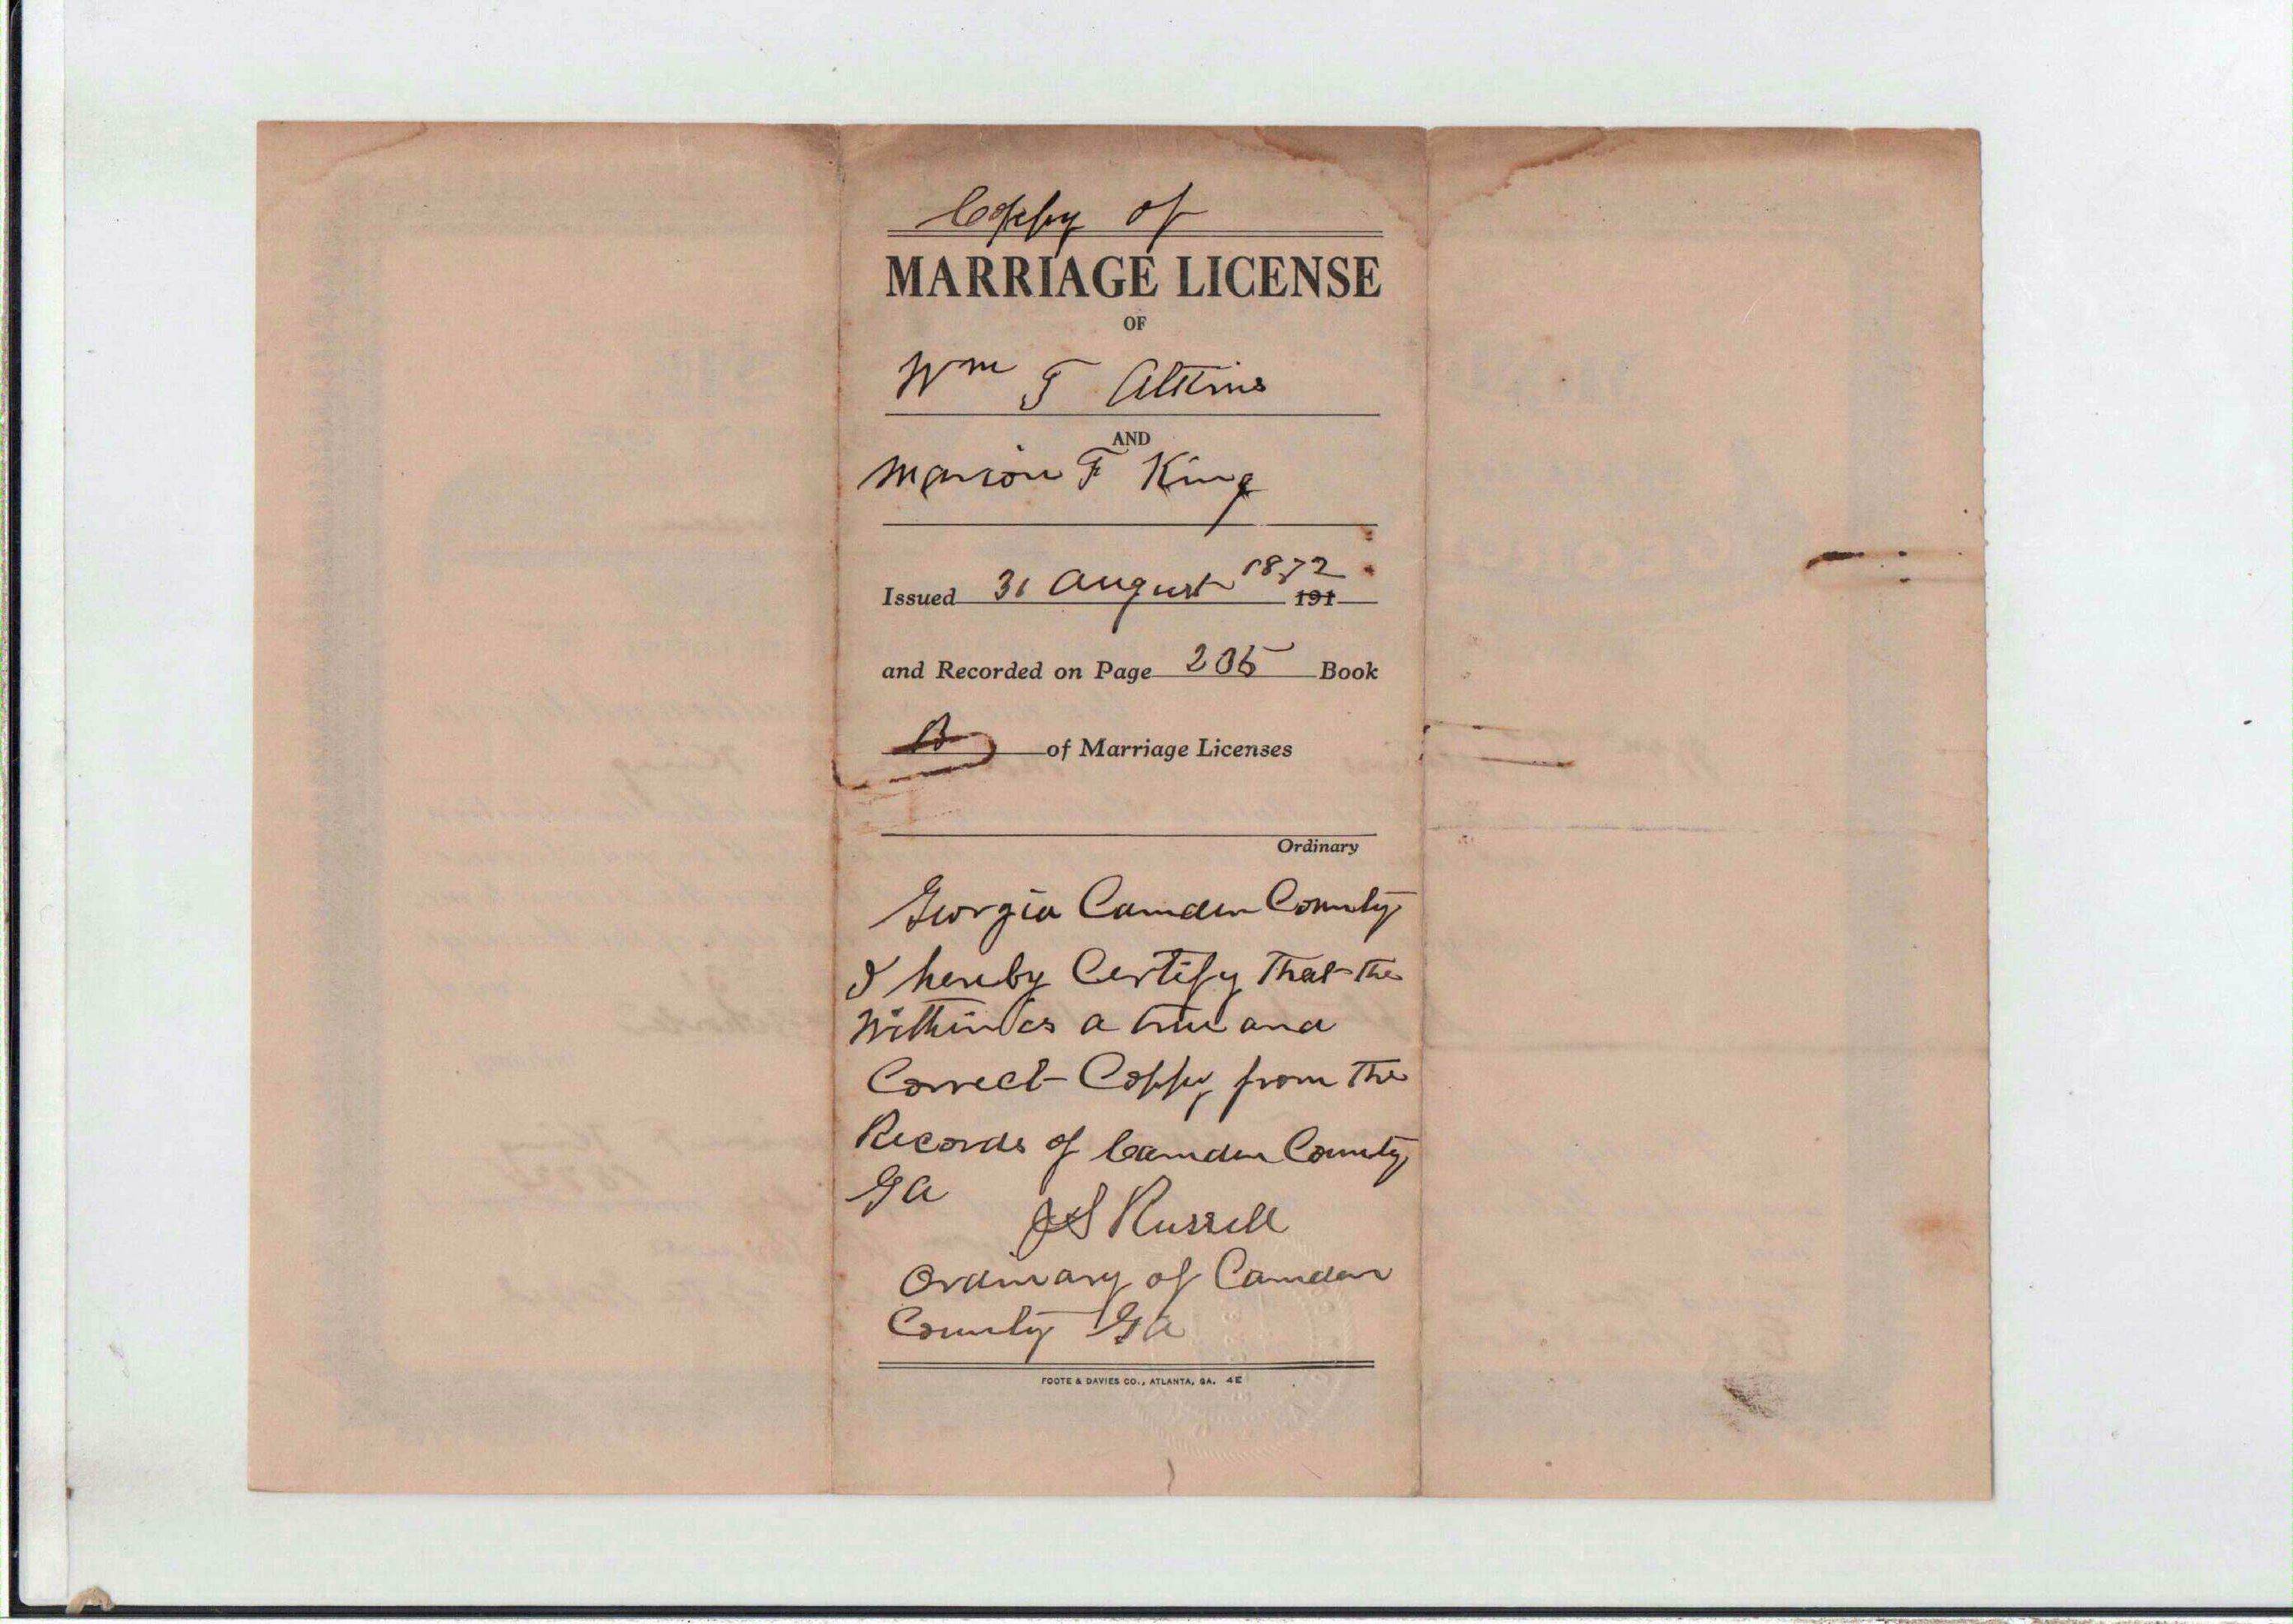 Coppy of
MARRIAGE LICENSE
OF
Wm T Atkins
AND
Marion F King
Issued 31 August 1872 191
and Recorded on Page 205 Book
B of Marriage Licenses
Ordinary
Georgia Camden County
I hereby Certify That the
Within is a true and
Correct Coppy from The
Records of Camden County
Ga
JS Russell
Ordinary of Camden
County Ga
FOOTE & DAVIES CO., ATLANTA, GA. 4E